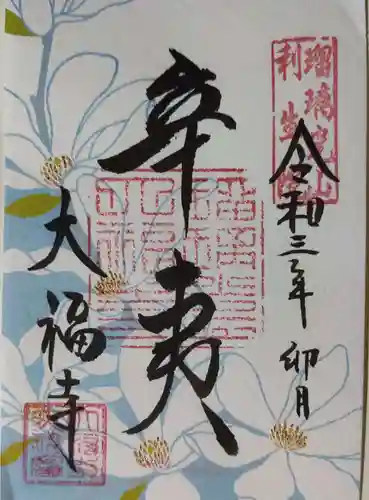 瑠璃光山
利生院
令和三年 卯月
辛夷
大福寺